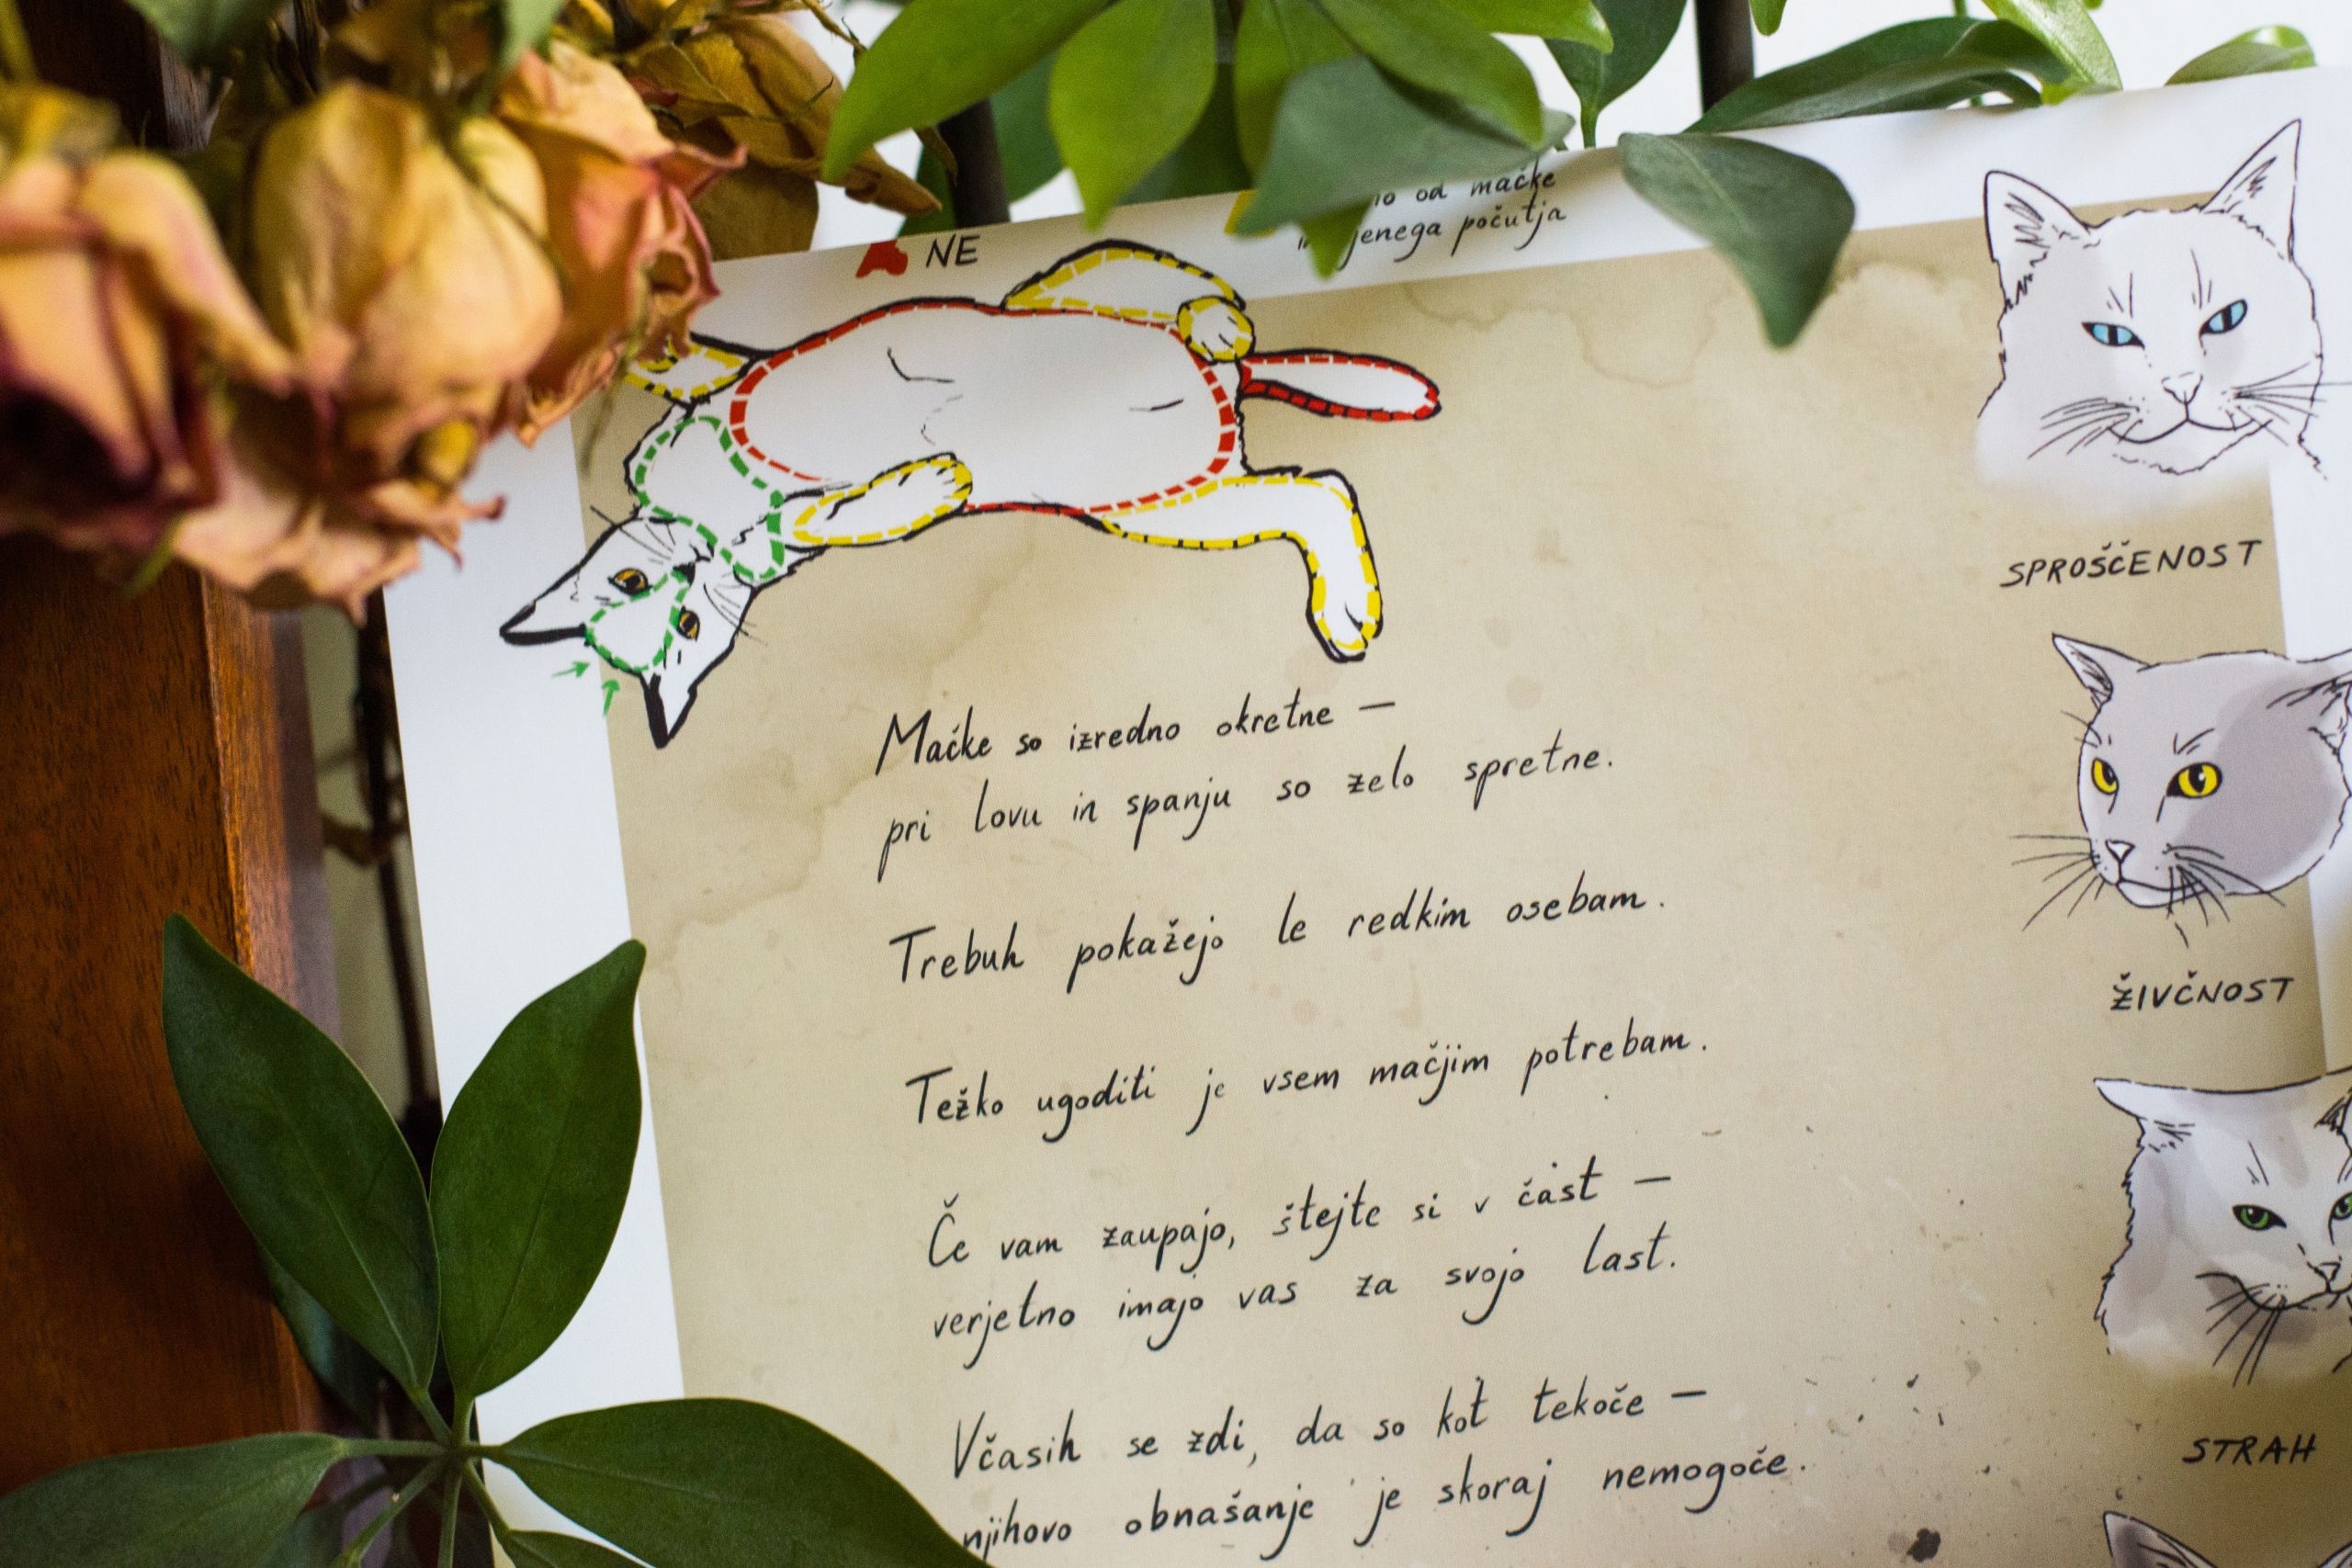 NE
od mačke
počutja
Mačke so izredno okretne –
pri lovu in spanju so zelo spretne.
Trebuh pokažejo le redkim osebam.
Težko ugoditi je vsem mačjim potrebam.
Če vam zaupajo, štejte si v čast –
verjetno imajo vas za svojo last.
Včasih se zdi, da so kot tekoče –
njihovo obnašanje je skoraj nemogoče.
SPROŠČENOST
ŽIVČNOST
STRAH